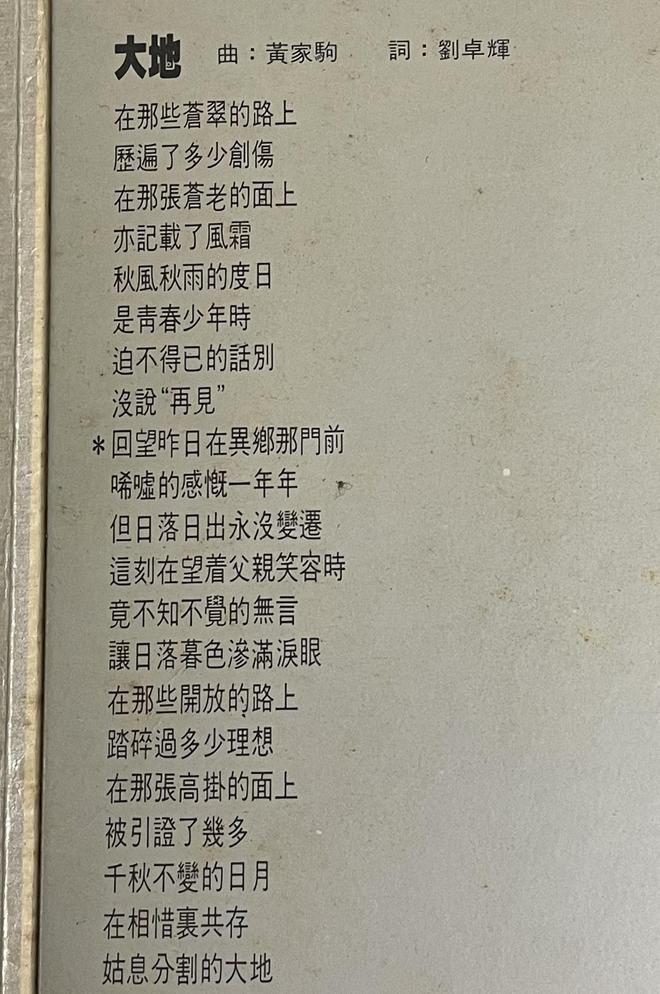 大地 曲：黃家駒 詞：劉卓輝
在那些蒼翠的路上
歷遍了多少創傷
在那張蒼老的面上
亦記載了風霜
秋風秋雨的度日
是靑春少年時
迫不得已的話別
沒說“再見”
*回望昨日在異鄉那門前
唏噓的感慨一年年
但日落日出永沒變遷
這刻在望着父親笑容時
竟不知不覺的無言
讓日落暮色滲滿淚眼
在那些開放的路上
踏碎過多少理想
在那張高掛的面上
被引證了幾多
千秋不變的日月
在相惜裏共存
姑息分割的大地